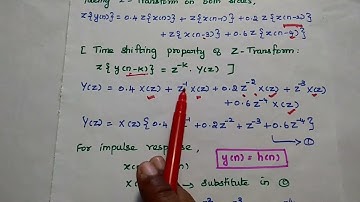 Taking Z-Transform on both sides,
z{y(n)} = 0.4 z{x(n)} + z{x(n-1)} + 0.2 z{x(n-2)}
+ z{x(n-3)} + 0.6 z{x(n-4)}
[ Time shifting property of Z-Transform:
z{y(n-k)} = z^-k . Y(z) ]
Y(z) = 0.4 X(z) + z^-1 X(z) + 0.2 z^-2 X(z) + z^-3 X(z)
+ 0.6 z^-4 X(z)
Y(z) = X(z) {0.4 + z^-1 + 0.2 z^-2 + z^-3 + 0.6 z^-4} ①
For impulse response,
y(n) = h(n)
x(
X( substitute in ①